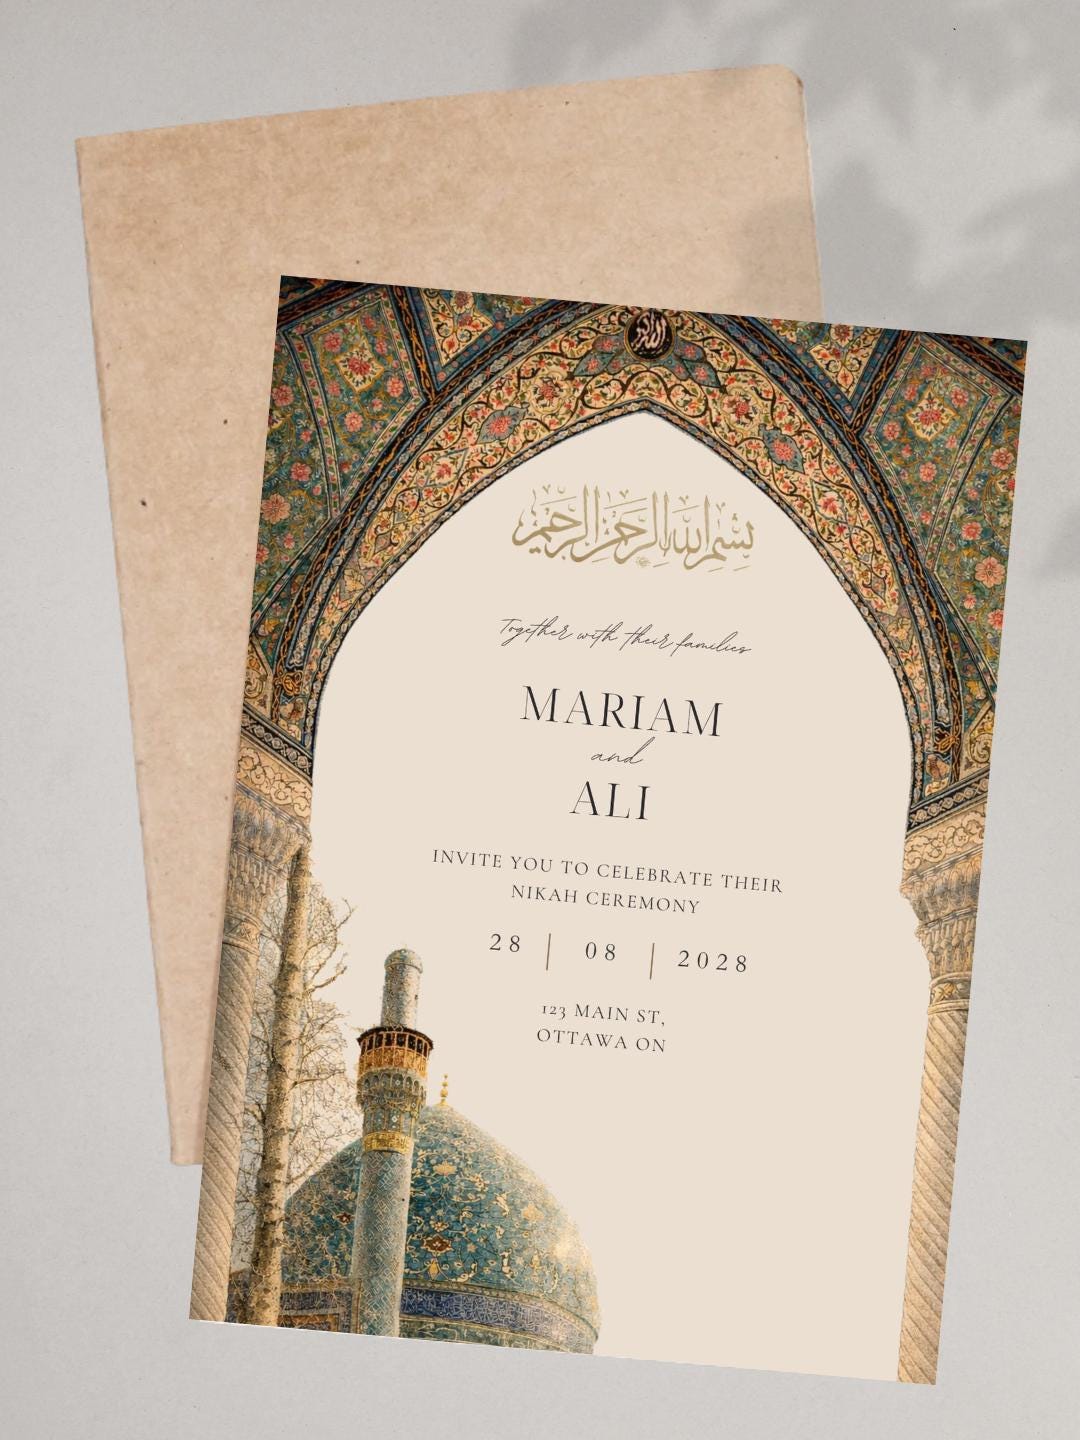 بسم الله الرحمن الرحيم
Together with their families
MARIAM
and
ALI
INVITE YOU TO CELEBRATE THEIR
NIKAH CEREMONY
28 | 08 | 2028
123 MAIN ST,
OTTAWA ON